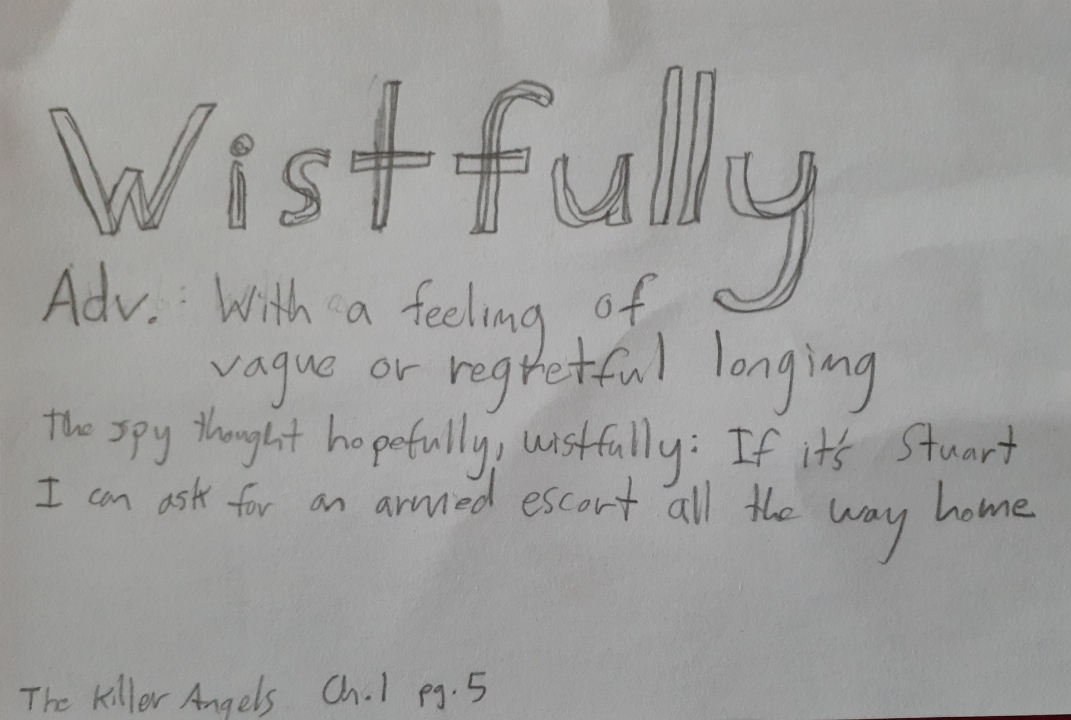 Wistfully
Adv.: With a feeling of
vague or regretful longing
The spy thought hopefully, wistfully: If it's Stuart
I can ask for an armed escort all the way home
The Killer Angels Ch.1 pg.5